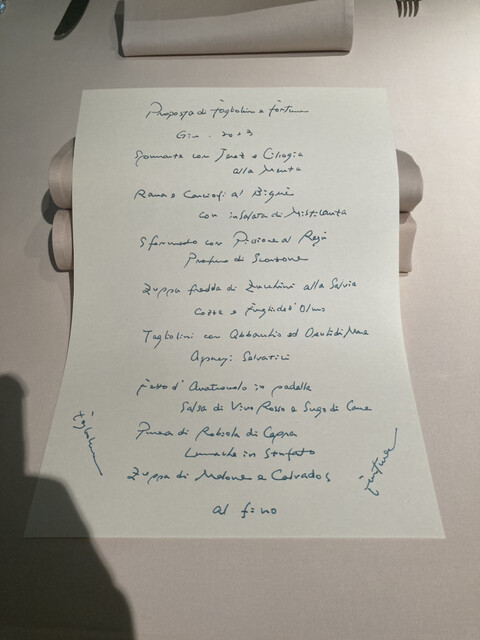 Proposta di Fagiolino e Fortuna
Giu. 2023
Spumante con Jerez e Ciliegia
alla Menta
Rana e Carciofi al Bignè
con insalata di Misticanta
Sformato con Piccione al
Profumo di Scorzone
Zuppa fredda di Zucchini alla Salvia
Cozze e Funghi dell'Olmo
Tagliolini con Abbacchio ed
Asparagi Selvatici
Petto d'Anatra in padella
Salsa di Vino Rosso e Sugo di Cane
Purea di Robiola di Capra
Lumache in Stufato
Zuppa di Melone e Calvados
al fino